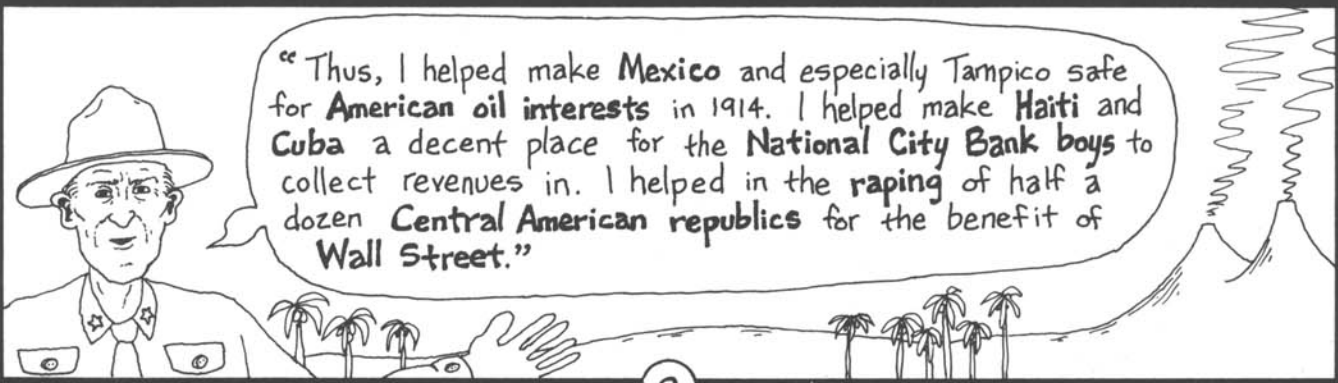 “Thus, I helped make Mexico and especially Tampico safe
for American oil interests in 1914. I helped make Haiti and
Cuba a decent place for the National City Bank boys to
collect revenues in. I helped in the raping of half a
dozen Central American republics for the benefit of
Wall Street.”